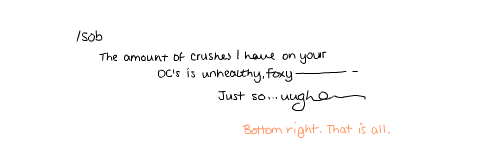 /sob
The amount of crushes I have on your
OC's is unhealthy, foxy
Just so...uugh
Bottom right. That is all.